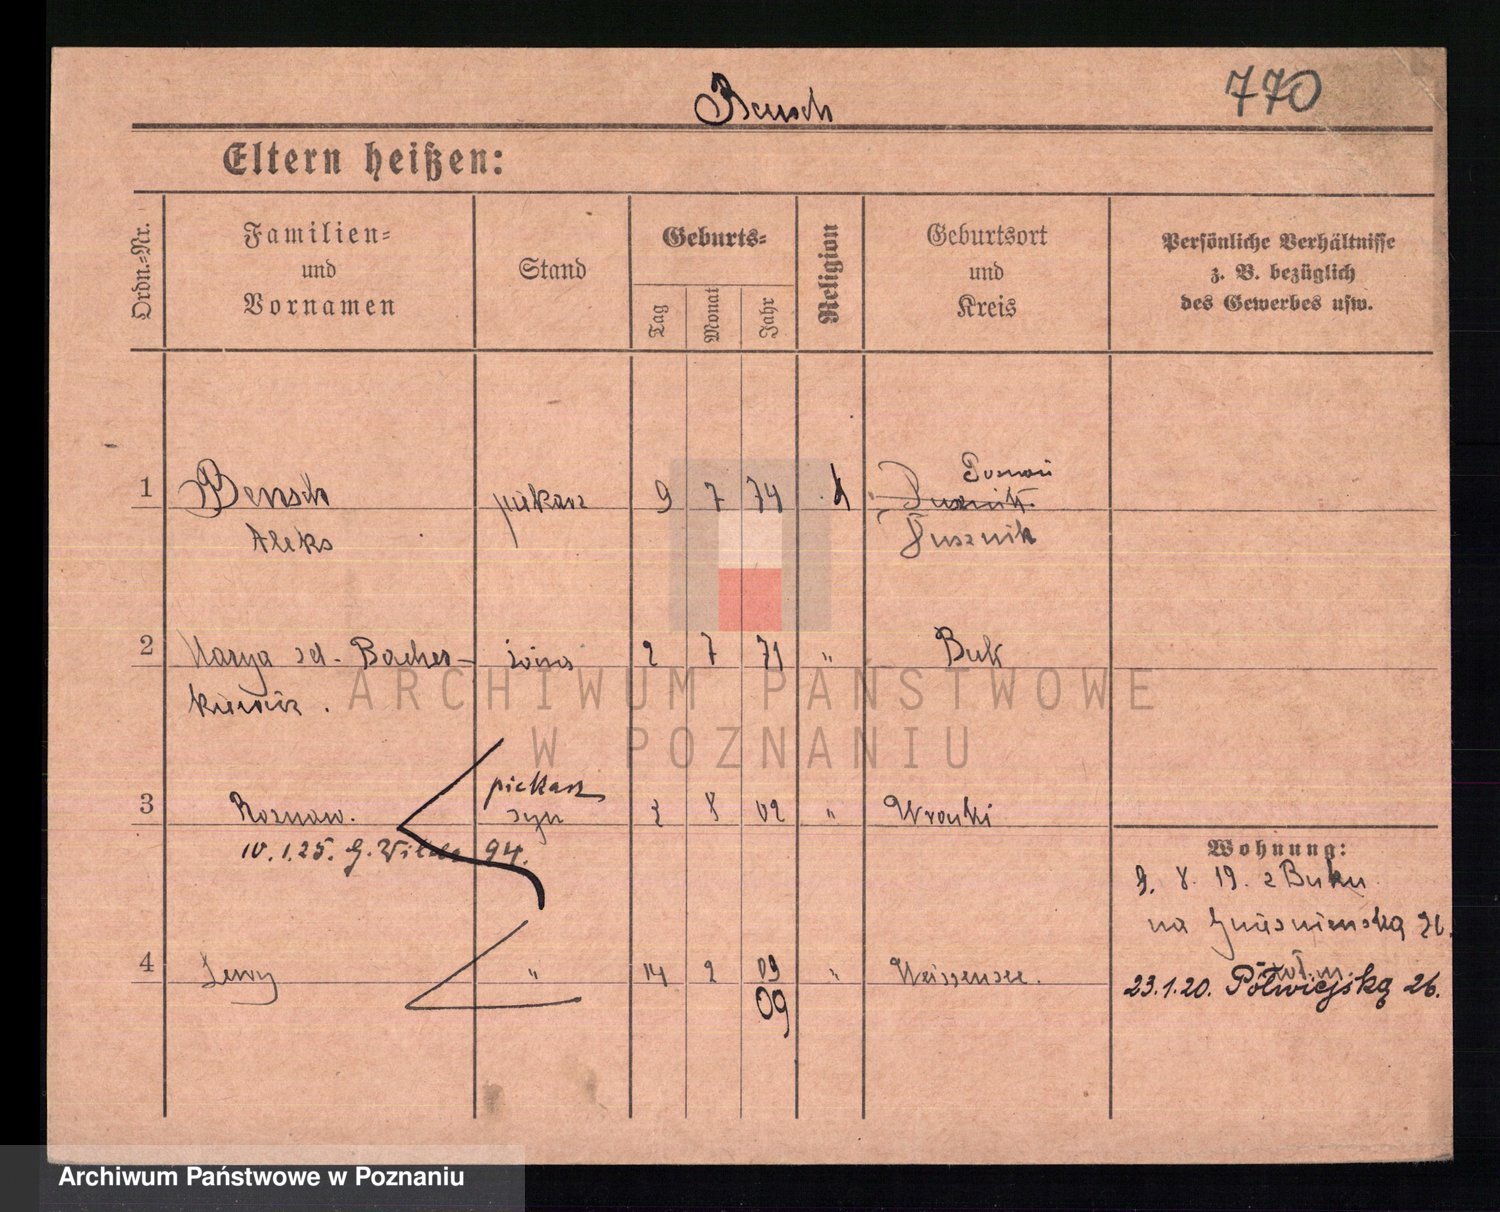 Bensch
770
Eltern heißen:
Ordn.-Nr.
Familien-
und
Vornamen
Stand
Geburts-
Tag
Monat
Jahr
Religion
Geburtsort
und
Kreis
Persönliche Verhältnisse
z. B. bezüglich
des Gewerbes usw.
1 Bensch piekarz 9 7 74 k
Aleks
Dusznik
2 Marya zd. Bacher- żona 2 7 71 " Buk
kiewicz.
piekarz
3 syn 8 02 " Wronki
10.1.25. G. Wilda 94.
Wohnung:
9. 8. 19. z Buku
na Gnieźnieńską
4 " 14 2 09 " Weissensee.
09
23.1.20. Półwiejską 26.
ARCHIWUM PAŃSTWOWE
W POZNANIU
Archiwum Państwowe w Poznaniu